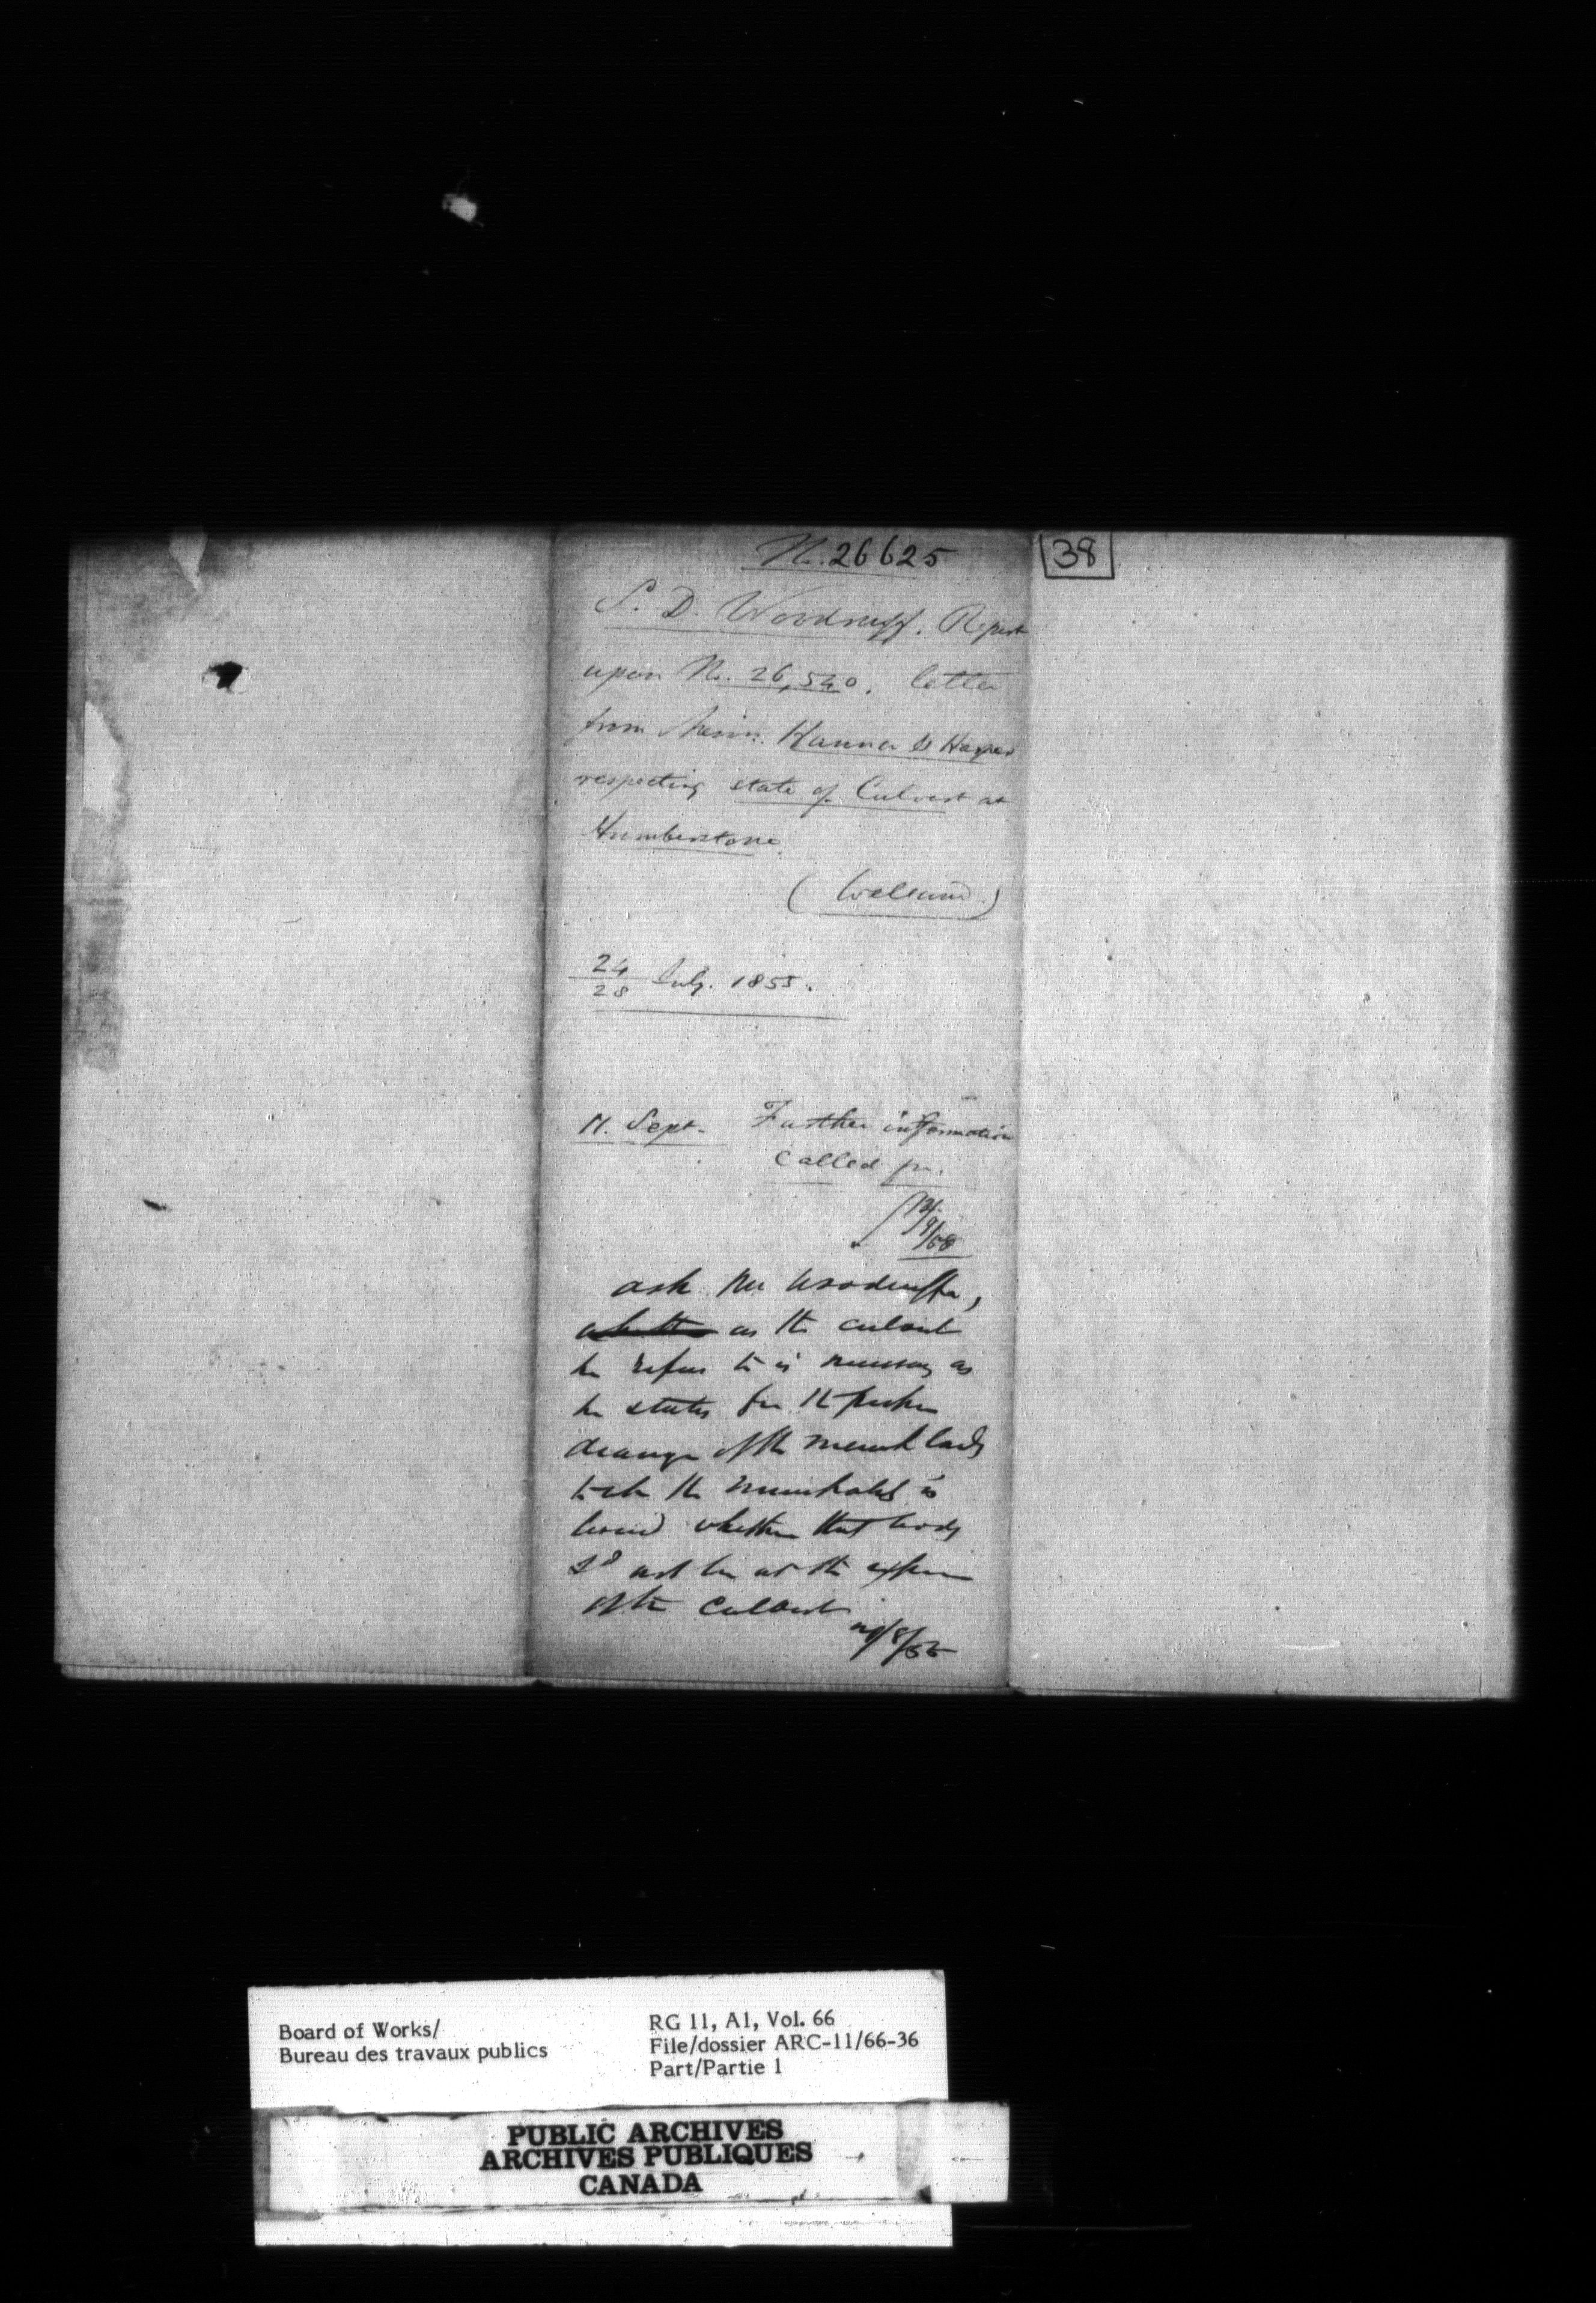 N. 26625
38
S. D. Woodruff. Report
upon No. 26,540. letter
from Messrs. Kanna & Harper
respecting state of Culvert at
Humberstone
(Welland)
24
28 July. 1855.
11. Sept. Further information
called for.
ask Mr Woodruff,
whether as the culvert
he refers to is necessary as
he states for the
drainage of the marsh lands
to the Municipality is
bound whether that body
sd not be at the expense
of the Culvert
Board of Works/
Bureau des travaux publics
RG 11, A1, Vol. 66
File/dossier ARC-11/66-36
Part/Partie 1
PUBLIC ARCHIVES
ARCHIVES PUBLIQUES
CANADA